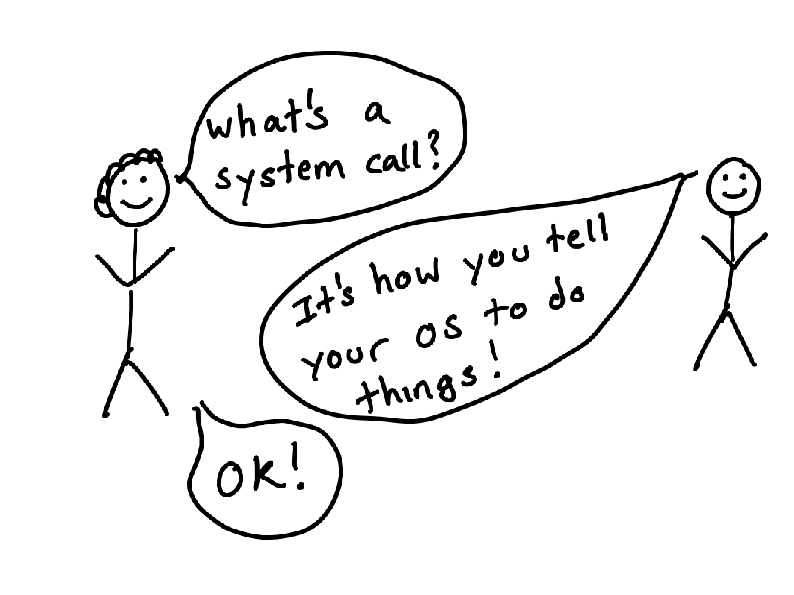 what's a
system call?
It's how you tell
your OS to do
things!
OK!